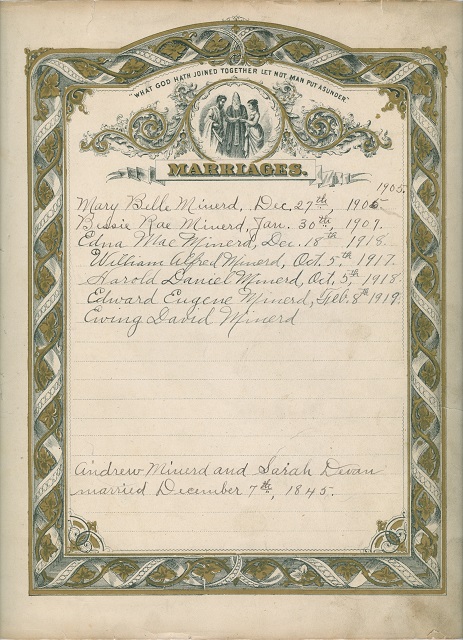 "WHAT GOD HATH JOINED TOGETHER LET NOT MAN PUT ASUNDER"
MARRIAGES.
1905.
Mary Belle Minerd, Dec. 27th, 1905
Bessie Rae Minerd, Jan. 30th, 1909.
Edna Mae Minerd, Dec. 18th 1918.
William Alfred Minerd, Oct. 5th 1917.
Harold Daniel Minerd, Oct, 5th, 1918.
Edward Eugene Minerd, Feb. 8th 1919.
Ewing David Minerd
Andrew Minerd and Sarah Devan
married December 7th, 1845.